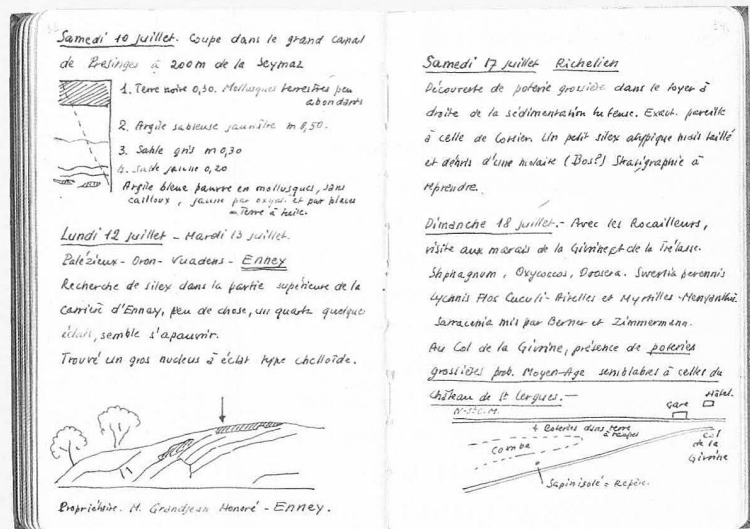 Samedi 10 juillet. Coupe dans le grand canal
de Presinges à 200m de la Seymaz
1. Terre noire 0,30. Mollusques terrestres peu
abondants
2. Argile sableuse jaunâtre m 0,50.
3. Sable gris m 0,30
4. Sable jaune 0,20
Argile bleue pauvre en mollusques, sans
cailloux, jaune par oxyd. et par places
= Terre à tuile.
Lundi 12 juillet - Mardi 13 juillet.
Palézieux - Oron - Vuadens - Enney
Recherche de silex dans la partie supérieure de la
carrière d'Ennay, peu de chose, un quartz quelques
éclats, semble s'apauvrir.
Trouvé un gros nucleus à éclat type chelloïde.
Propriétaire. M. Grandjean Honoré - Enney.
Samedi 17 juillet Richelien
Découverte de poterie grossière dans le foyer à
droite de la sédimentation Exact. pareille
à celle de Corsier. Un petit silex atypique mais taillé
et débris d'une molaire (Bos?) Stratigraphie à
reprendre.
Dimanche 18 juillet.- Avec les Rocailleurs,
visite aux marais de la Givrine et de la Trélasse.
Shphagnum, Oxycocos, Drosera. Swertia perennis
Lychnis Flos Cuculi - Airelles et Myrtilles - Menyanthe.
Sarracenia mis par Berner et Zimmermann.
Au Col de la Givrine, présence de poteries
grossières prob. Moyen-Age semblables à celles du
Château de St Cergues.-
Hôtel.
Gare
N-StC.M.
+ Poteries dans terre
à taupes
Combe
Col
de la
Givrine
Sapin isolé = Repère.